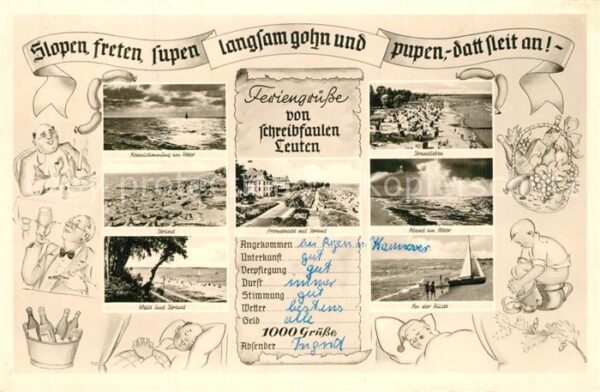 Slopen, freten, supen langsam gohn und pupen,-datt sleit an!-
Feriengrüße
von
schreibfaulen
Leuten
Abendstimmung am Meer
Strandleben
Strand
Promenade mit Strand
Abend am Meer
Wald und Strand
An der Küste
Angekommen
Hannover
Unterkunft gut
Verpflegung gut
Durst immer
Stimmung gut
Wetter bestens
Geld alle
1000 Grüße
Absender Ingrid